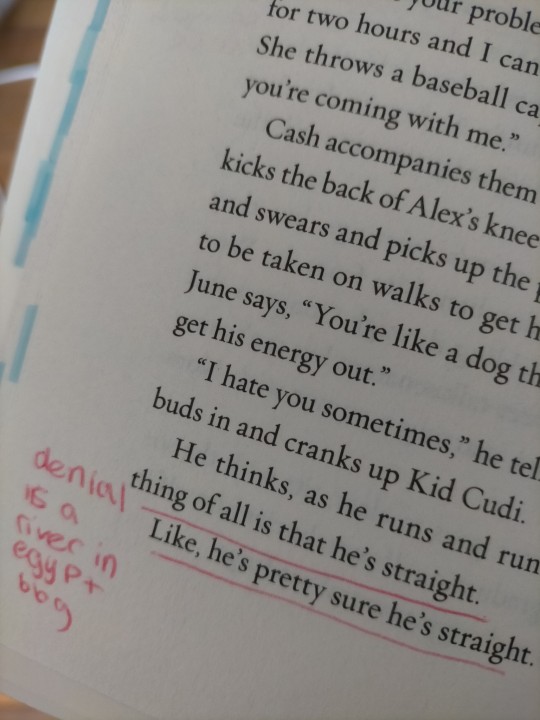 your proble
for two hours and I can
She throws a baseball ca
you're coming with me."
Cash accompanies them
kicks the back of Alex's knee
and swears and picks up the
to be taken on walks to get h
June says, "You're like a dog th
get his energy out."
"I hate you sometimes," he tel
buds in and cranks up Kid Cudi.
He thinks, as he runs and run
thing of all is that he's straight.
Like, he's pretty sure he's straight.
denial
is a
river in
egypt
bbg